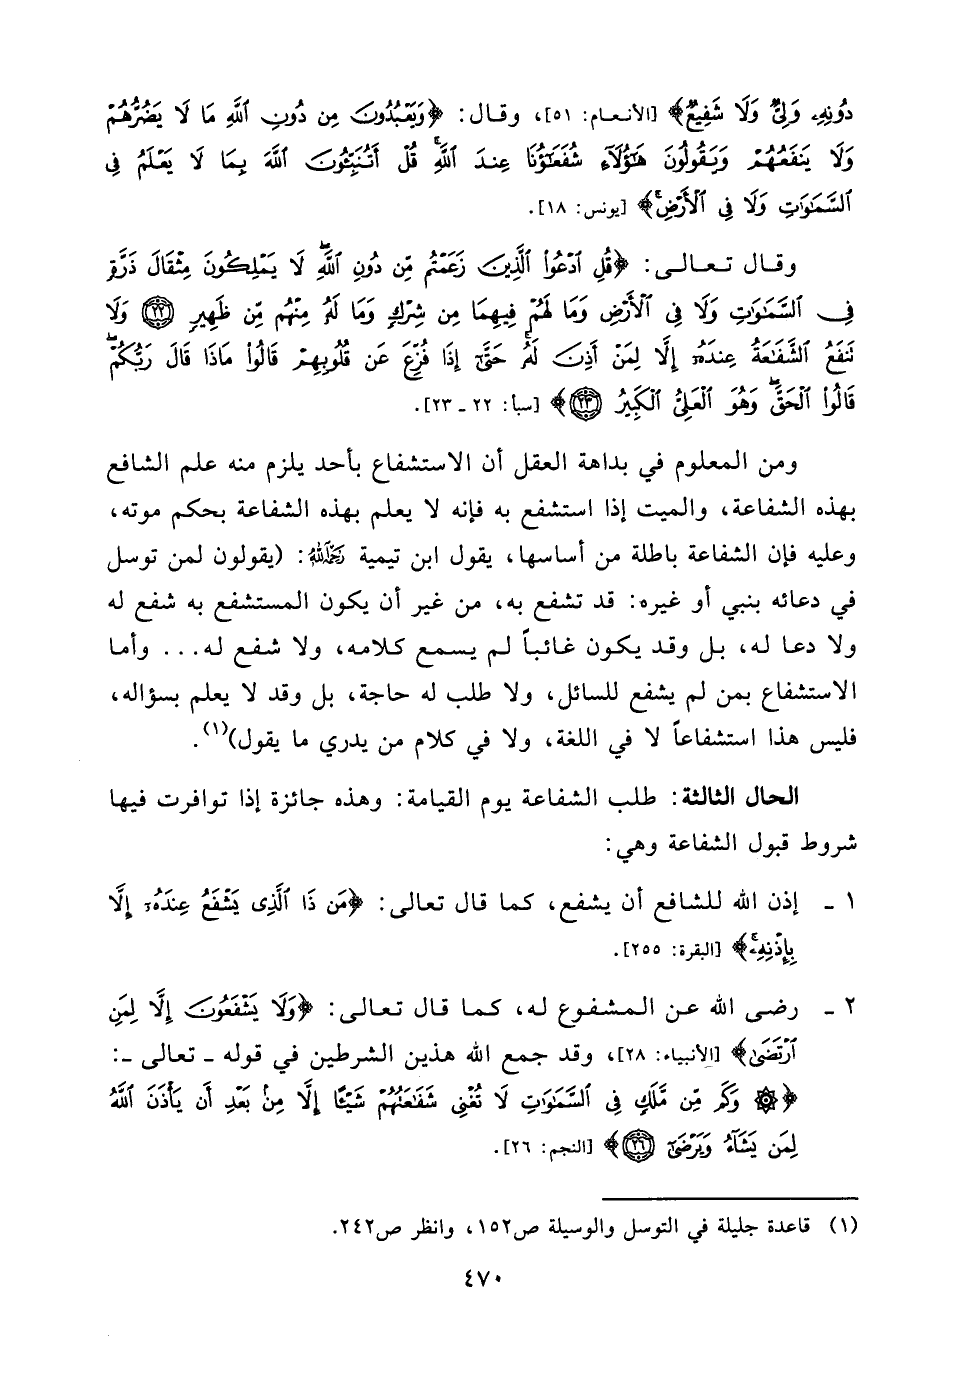 دُونِهِۦ وَلِيٌّ وَلَا شَفِيعٌ﴾ [الأنعام: ٥١]، وقال: ﴿وَيَعْبُدُونَ مِن دُونِ ٱللَّهِ مَا لَا يَضُرُّهُمْ
وَلَا يَنفَعُهُمْ وَيَقُولُونَ هَٰٓؤُلَآءِ شُفَعَٰٓؤُنَا عِندَ ٱللَّهِۚ قُلْ أَتُنَبِّـُٔونَ ٱللَّهَ بِمَا لَا يَعْلَمُ فِى
ٱلسَّمَٰوَٰتِ وَلَا فِى ٱلْأَرْضِۚ﴾ [يونس: ١٨].
وقال تعالى: ﴿قُلِ ٱدْعُوا۟ ٱلَّذِينَ زَعَمْتُم مِّن دُونِ ٱللَّهِۖ لَا يَمْلِكُونَ مِثْقَالَ ذَرَّةٍ
فِى ٱلسَّمَٰوَٰتِ وَلَا فِى ٱلْأَرْضِ وَمَا لَهُمْ فِيهِمَا مِن شِرْكٍ وَمَا لَهُۥ مِنْهُم مِّن ظَهِيرٍ ٢٢ وَلَا
تَنفَعُ ٱلشَّفَٰعَةُ عِندَهُۥٓ إِلَّا لِمَنْ أَذِنَ لَهُۥۚ حَتَّىٰٓ إِذَا فُزِّعَ عَن قُلُوبِهِمْ قَالُوا۟ مَاذَا قَالَ رَبُّكُمْۖ
قَالُوا۟ ٱلْحَقَّۖ وَهُوَ ٱلْعَلِىُّ ٱلْكَبِيرُ ٢٣﴾ [سبأ: ٢٢ ـ ٢٣].
ومن المعلوم في بداهة العقل أن الاستشفاع بأحد يلزم منه علم الشافع
بهذه الشفاعة، والميت إذا استشفع به فإنه لا يعلم بهذه الشفاعة بحكم موته،
وعليه فإن الشفاعة باطلة من أساسها، يقول ابن تيمية رحمه الله: (يقولون لمن توسل
في دعائه بنبي أو غيره: قد تشفع به، من غير أن يكون المستشفع به شفع له
ولا دعا له، بل وقد يكون غائباً لم يسمع كلامه، ولا شفع له... وأما
الاستشفاع بمن لم يشفع للسائل، ولا طلب له حاجة، بل وقد لا يعلم بسؤاله،
فليس هذا استشفاعاً لا في اللغة، ولا في كلام من يدري ما يقول)(١).
الحال الثالثة: طلب الشفاعة يوم القيامة: وهذه جائزة إذا توافرت فيها
شروط قبول الشفاعة وهي:
١ ـ إذن الله للشافع أن يشفع، كما قال تعالى: ﴿مَن ذَا ٱلَّذِى يَشْفَعُ عِندَهُۥٓ إِلَّا
بِإِذْنِهِۦۚ﴾ [البقرة: ٢٥٥].
٢ ـ رضى الله عن المشفوع له، كما قال تعالى: ﴿وَلَا يَشْفَعُونَ إِلَّا لِمَنِ
ٱرْتَضَىٰ﴾ [الأنبياء: ٢٨]، وقد جمع الله هذين الشرطين في قوله ـ تعالى ـ:
﴿۞ وَكَم مِّن مَّلَكٍ فِى ٱلسَّمَٰوَٰتِ لَا تُغْنِى شَفَٰعَتُهُمْ شَيْـًٔا إِلَّا مِنۢ بَعْدِ أَن يَأْذَنَ ٱللَّهُ
لِمَن يَشَآءُ وَيَرْضَىٰٓ ٢٦﴾ [النجم: ٢٦].
(١) قاعدة جليلة في التوسل والوسيلة ص١٥٢، وانظر ص٢٤٢.
٤٧٠